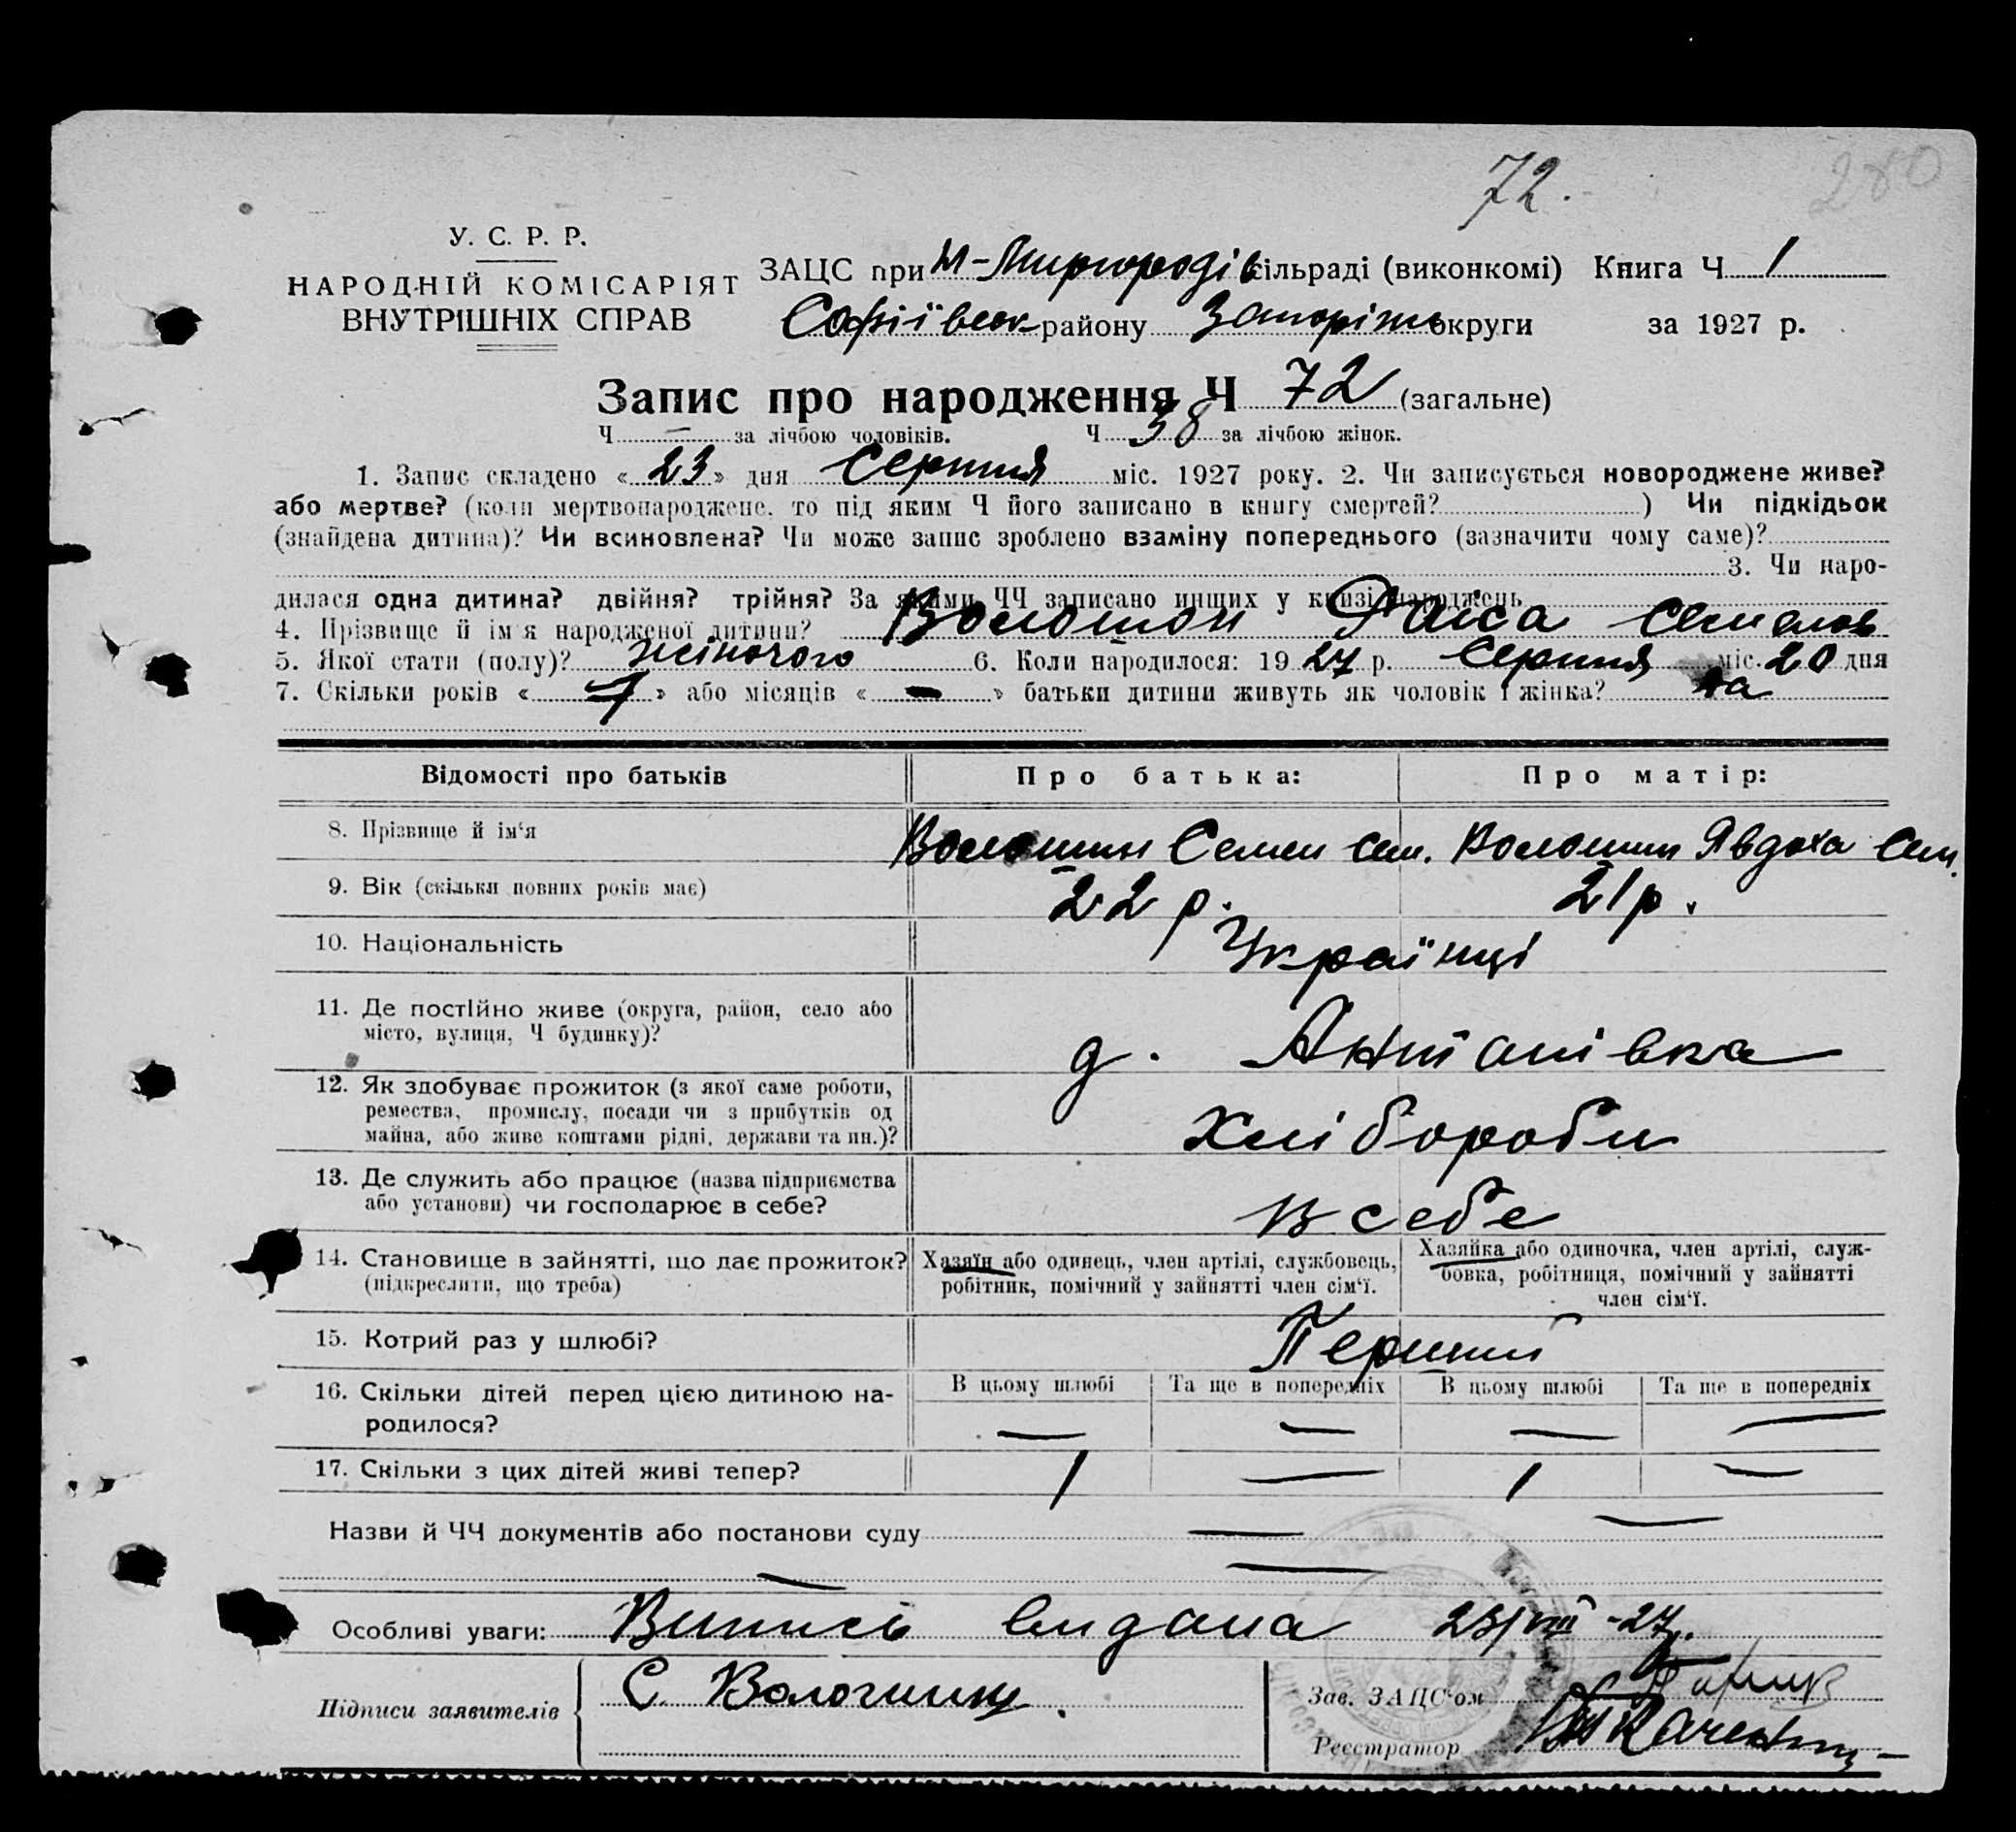 72.
280
У. С. Р. Р.
НАРОДНІЙ КОМІСАРІЯТ
ВНУТРІШНІХ СПРАВ
ЗАЦС при М-Миргородів сільраді (виконкомі) Книга Ч 1
Софіївськ району Запоріж округи за 1927 р.
Запис про народження Ч 72 (загальне)
Ч — за лічбою чоловіків. Ч 38 за лічбою жінок.
1. Запис складено «23» дня Серпня міс. 1927 року. 2. Чи записується новороджене живе?
або мертве? (коли мертвонароджене, то під яким Ч його записано в книгу смертей? ) Чи підкідьок
(знайдена дитина)? Чи всиновлена? Чи може запис зроблено взаміну попереднього (зазначити чому саме)?
3. Чи наро-
дилася одна дитина? двійня? трійня? За якими ЧЧ записано инших у книзі народжень
4. Прізвище й ім'я народженої дитини? Волошин Раїса Семенов
5. Якої стати (полу)? жіночого 6. Коли народилося: 1927 р. Серпня міс. 20 дня
7. Скільки років « » або місяців « — » батьки дитини живуть як чоловік і жінка?
Відомості про батьків Про батька: Про матір:
8. Прізвище й ім'я Волошин Семен Сем. Волошин Явдоха Сем.
9. Вік (скільки повних років має) 22 р. 21 р.
10. Національність Українці
11. Де постійно живе (округа, район, село або
місто, вулиця, Ч будинку)? д. Антонівка
12. Як здобуває прожиток (з якої саме роботи,
ремества, промислу, посади чи з прибутків од
майна, або живе коштами рідні, держави та ин.)? Хлібороби
13. Де служить або працює (назва підприємства
або установи) чи господарює в себе? в себе
14. Становище в зайнятті, що дає прожиток?
(підкреслити, що треба)
Хазяїн або одинець, член артілі, службовець,
робітник, помічний у зайнятті член сім'ї.
Хазяйка або одиночка, член артілі, служ-
бовка, робітниця, помічний у зайнятті
член сім'ї.
15. Котрий раз у шлюбі? Перший
16. Скільки дітей перед цією дитиною на-
родилося?
В цьому шлюбі Та ще в попередніх В цьому шлюбі Та ще в попередніх
— — — —
17. Скільки з цих дітей живі тепер? 1 — 1 —
Назви й ЧЧ документів або постанови суду — —
— —
Особливі уваги: Випись видана 23/VIII-27
Підписи заявителів С. Волошин
Зав. ЗАЦС'ом
Реєстратор